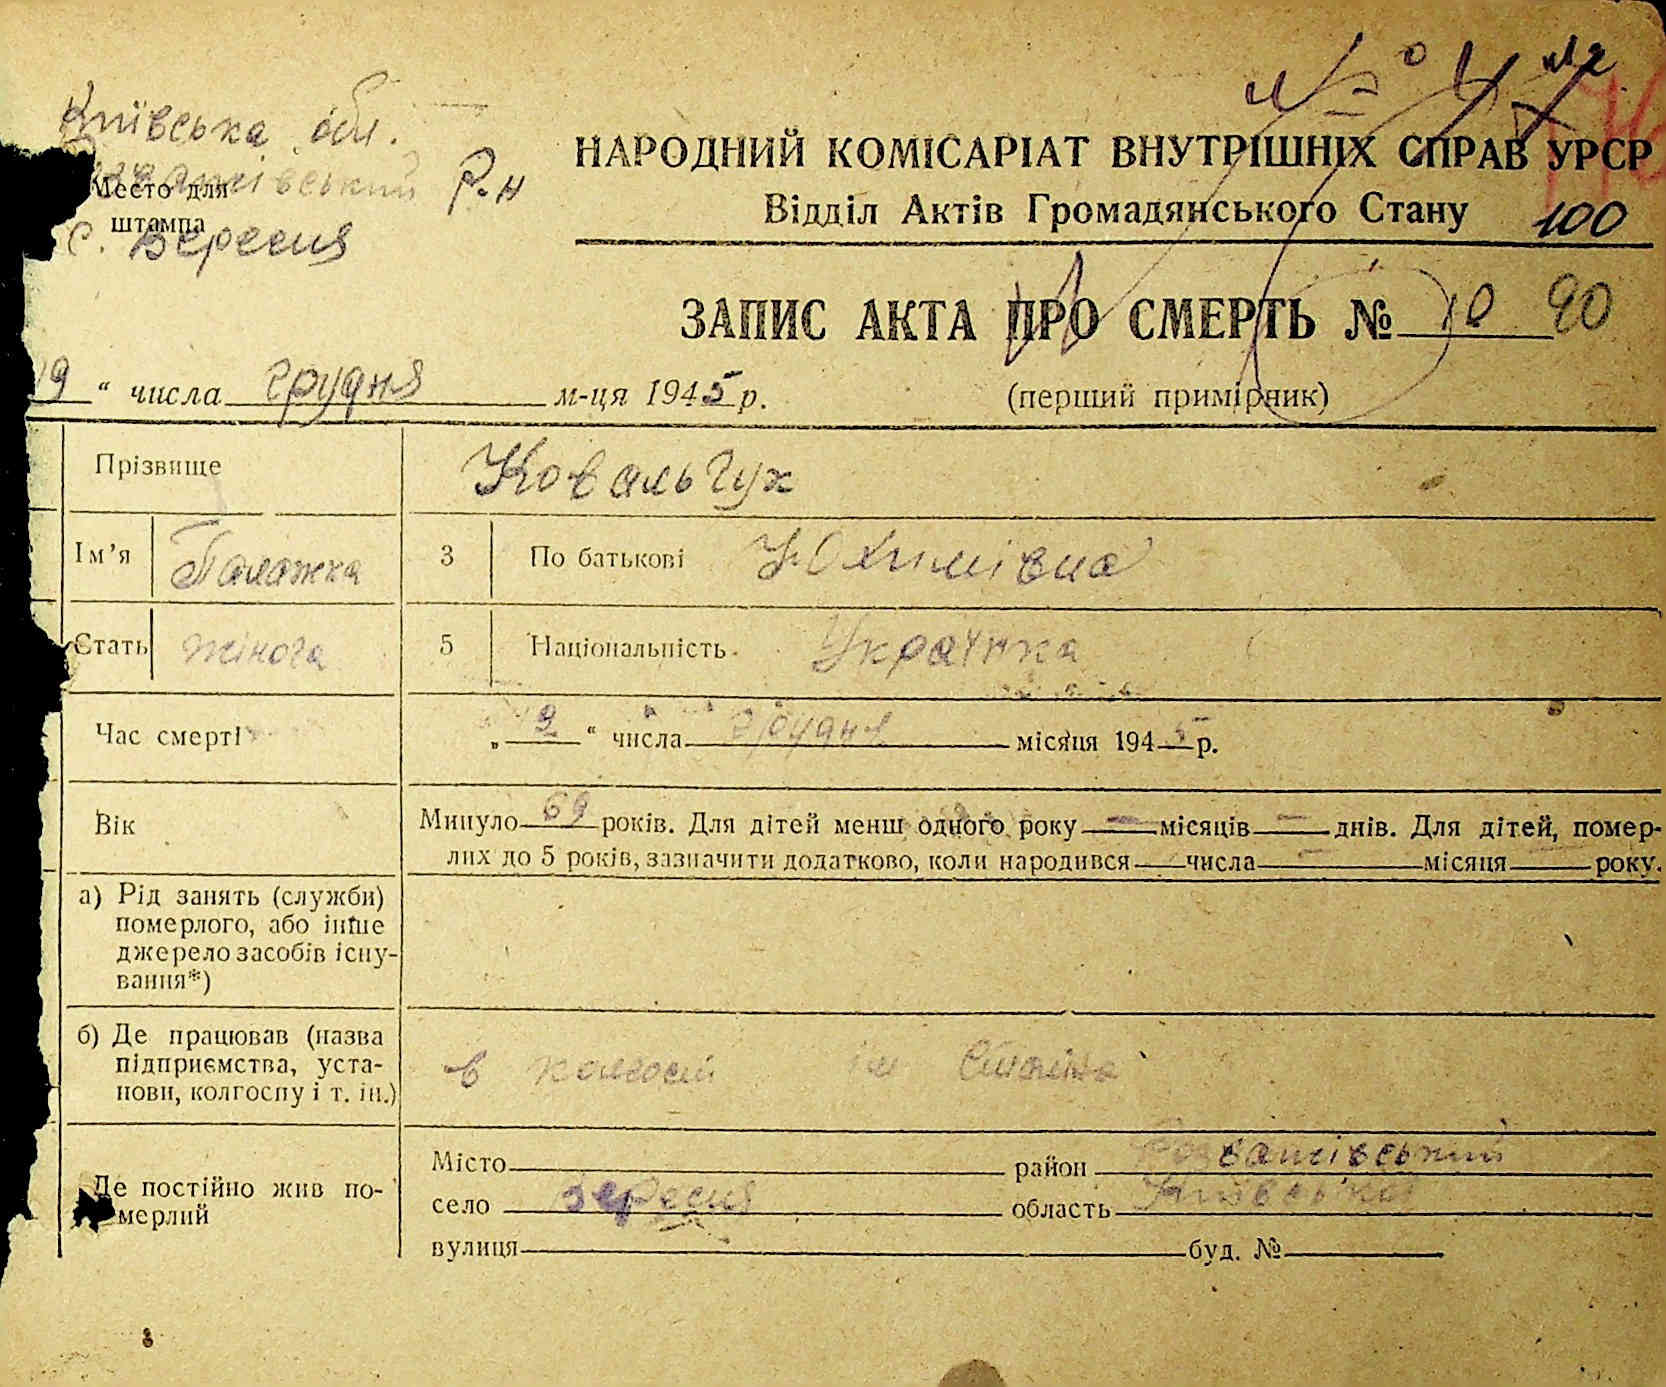 № 4
Київська обл.
НАРОДНИЙ КОМІСАРІАТ ВНУТРІШНІХ СПРАВ УРСР
Розважівський Р-н
Место для
штампа
с. Вересня
Відділ Актів Громадянського Стану 100
ЗАПИС АКТА ПРО СМЕРТЬ № 10 90
19 “ числа грудня м-ця 1945 р. (перший примірник)
Прізвище Ковальчук
Ім’я Палажка 3 По батькові Юхимівна
Стать жіноча 5 Національність Українка
Час смерті „ 9 “ числа грудня місяця 1945 р.
Вік Минуло 69 років. Для дітей менш одного року — місяців — днів. Для дітей, помер-
лих до 5 років, зазначити додатково, коли народився — числа — місяця року.
а) Рід занять (служби)
померлого, або інше
джерело засобів існу-
вання*)
б) Де працював (назва
підприємства, уста-
нови, колгоспу і т. ін.)
в колгоспі ім Сталіна
Де постійно жив по-
мерлий
Місто район Розважівський
село Вересня область Київська
вулиця буд. №